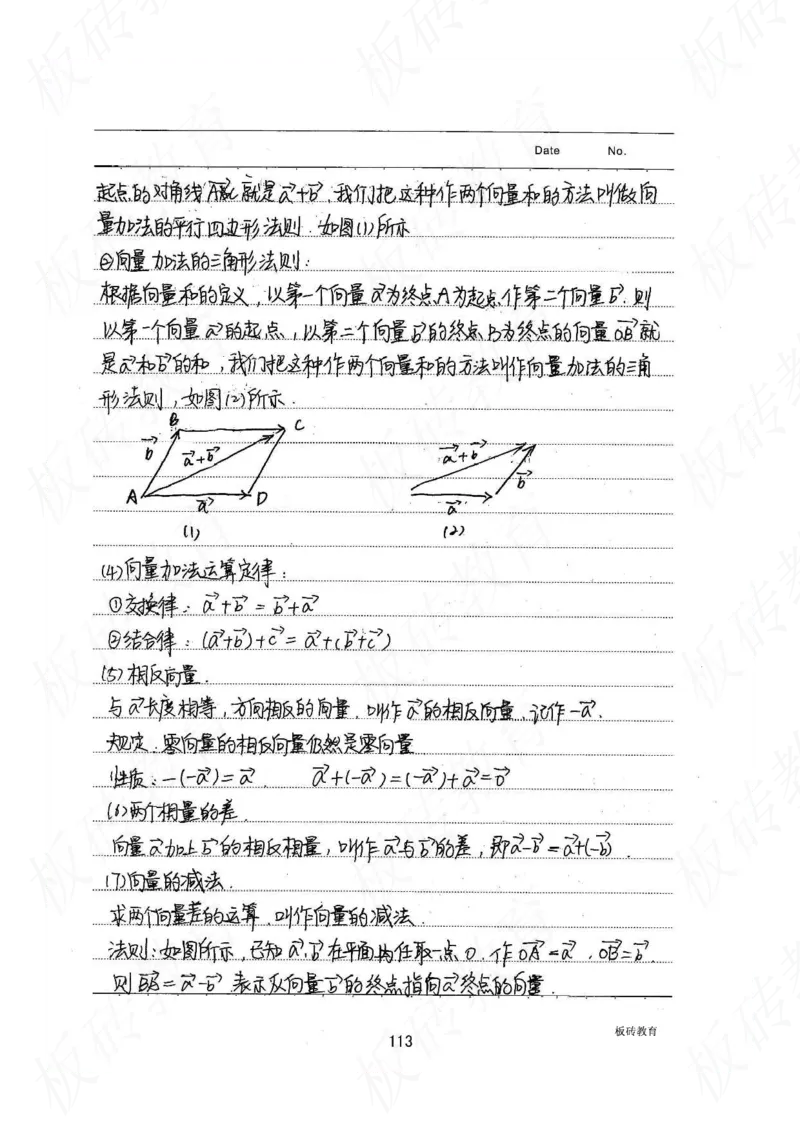 Date No.
起点的对角线AC就是a⃗+b⃗.我们把这种作两个向量和的方法叫做向
量加法的平行四边形法则.如图(1)所示
②向量加法的三角形法则:
根据向量和的定义,以第一个向量a⃗为终点A为起点作第二个向量b⃗.则
以第一个向量a⃗的起点,以第二个向量b⃗的终点B为终点的向量OB⃗就
是a⃗和b⃗的和,我们把这种作两个向量和的方法叫作向量加法的三角
形法则,如图(2)所示.
B C
b⃗ a⃗+b⃗ a⃗+b⃗ b⃗
A a⃗ D a⃗
(1) (2)
(4)向量加法运算定律:
①交换律:a⃗+b⃗=b⃗+a⃗
②结合律:(a⃗+b⃗)+c⃗=a⃗+(b⃗+c⃗)
(5)相反向量.
与a⃗长度相等,方向相反的向量.叫作a⃗的相反向量.记作-a⃗.
规定.零向量的相反向量仍然是零向量
性质:-(-a⃗)=a⃗. a⃗+(-a⃗)=(-a⃗)+a⃗=0⃗
(6)两个相量的差.
向量a⃗加上b⃗的相反相量,叫作a⃗与b⃗的差,即a⃗-b⃗=a⃗+(-b⃗).
(7)向量的减法.
求两个向量差的运算.叫作向量的减法.
法则:如图所示,已知a⃗,b⃗在平面内任取一点O.作OA⃗=a⃗,OB⃗=b⃗.
则=a⃗-b⃗.表示从向量b⃗的终点指向a⃗终点的向量.
113
板砖教育